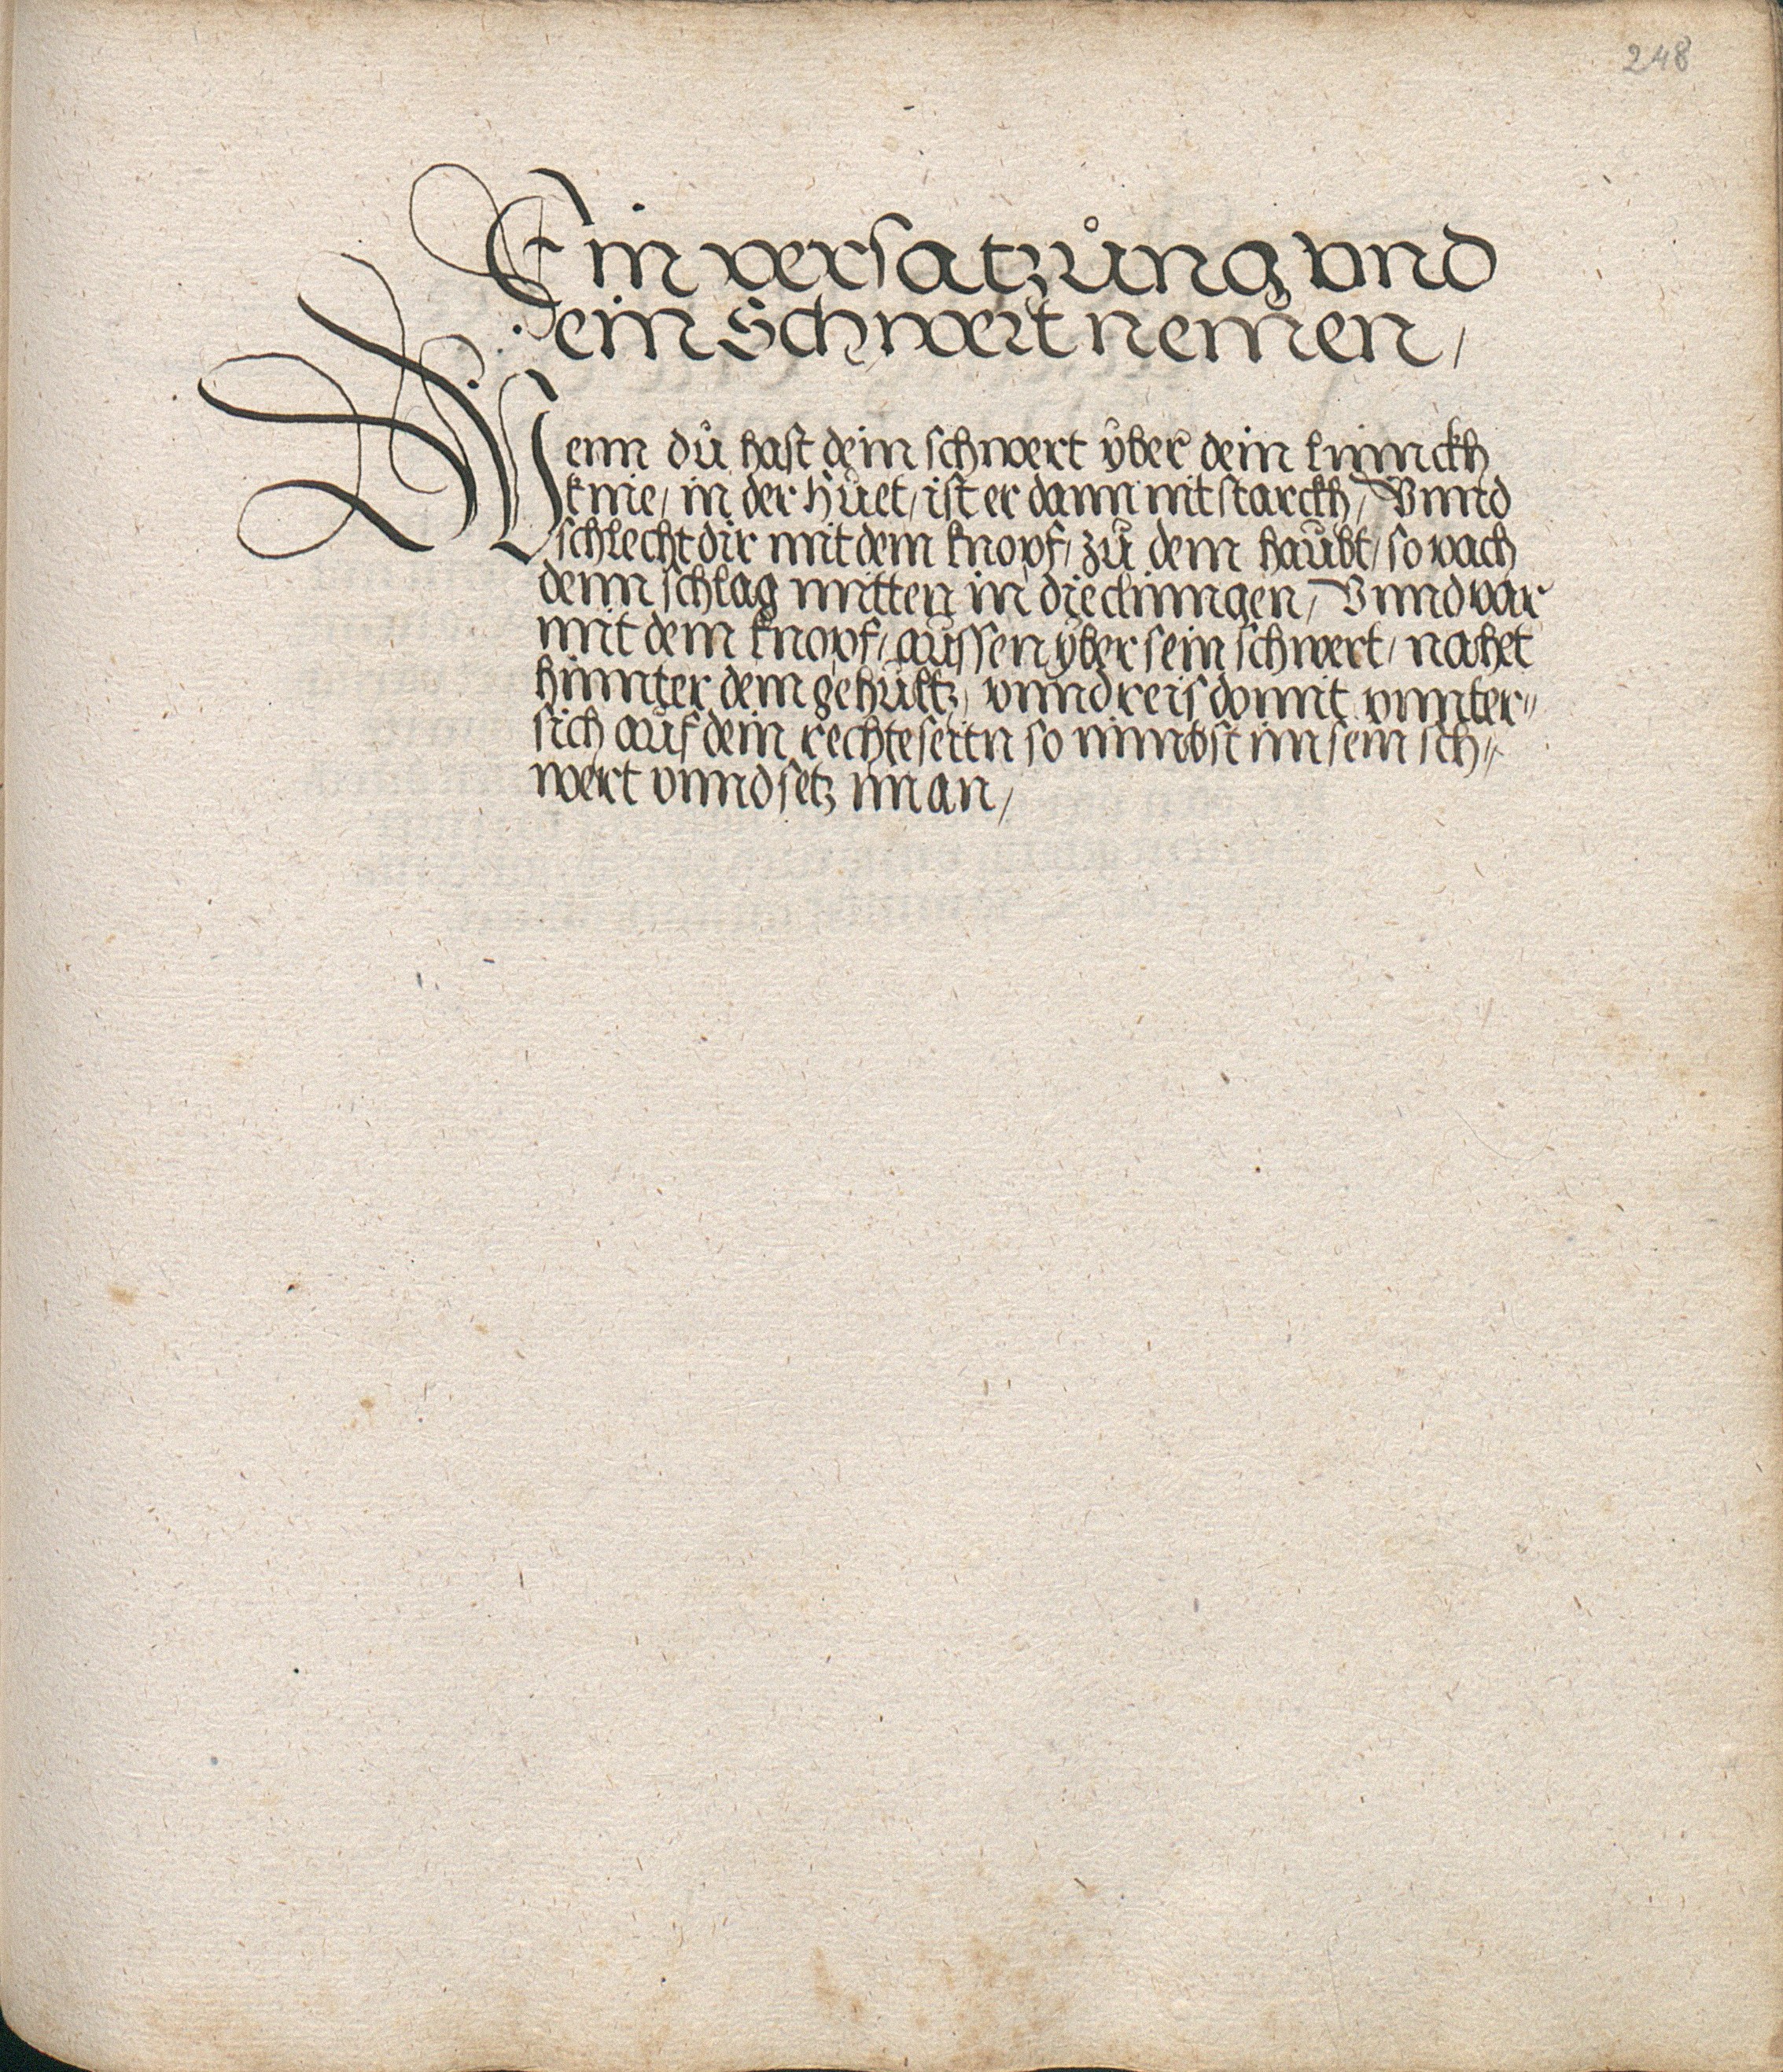 248
Ein versatzůng vnd
ein Schwert nemen /
Wenn dů hast dein schwert ÿber dein linnckh
knie / in der Hůet / ist er dann nit starckh / Vnnd
schlecht dir mit dem knopf / zů dem haůbt / so vach
denn schlag mitten in die clinngen / Vnnd var
mit dem knopf / aůssen ÿber sein schwert / nahet
hinnter dem gehůltz / vnnd reis domit vnnter„
sich aůf dein rechte seitn so nimbst im sein sch„
wert vnnd setz im an /